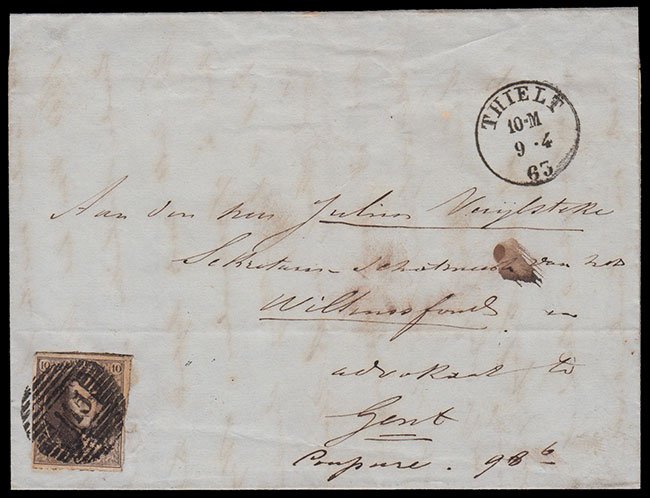 THIELT
10-M
9-4
63
Aan den heer Julius Vuylsteke
Sekretaris-Schatmeester van het
Willemsfonds en
advokaat te
Gent
Coupure. 98 b
10 10